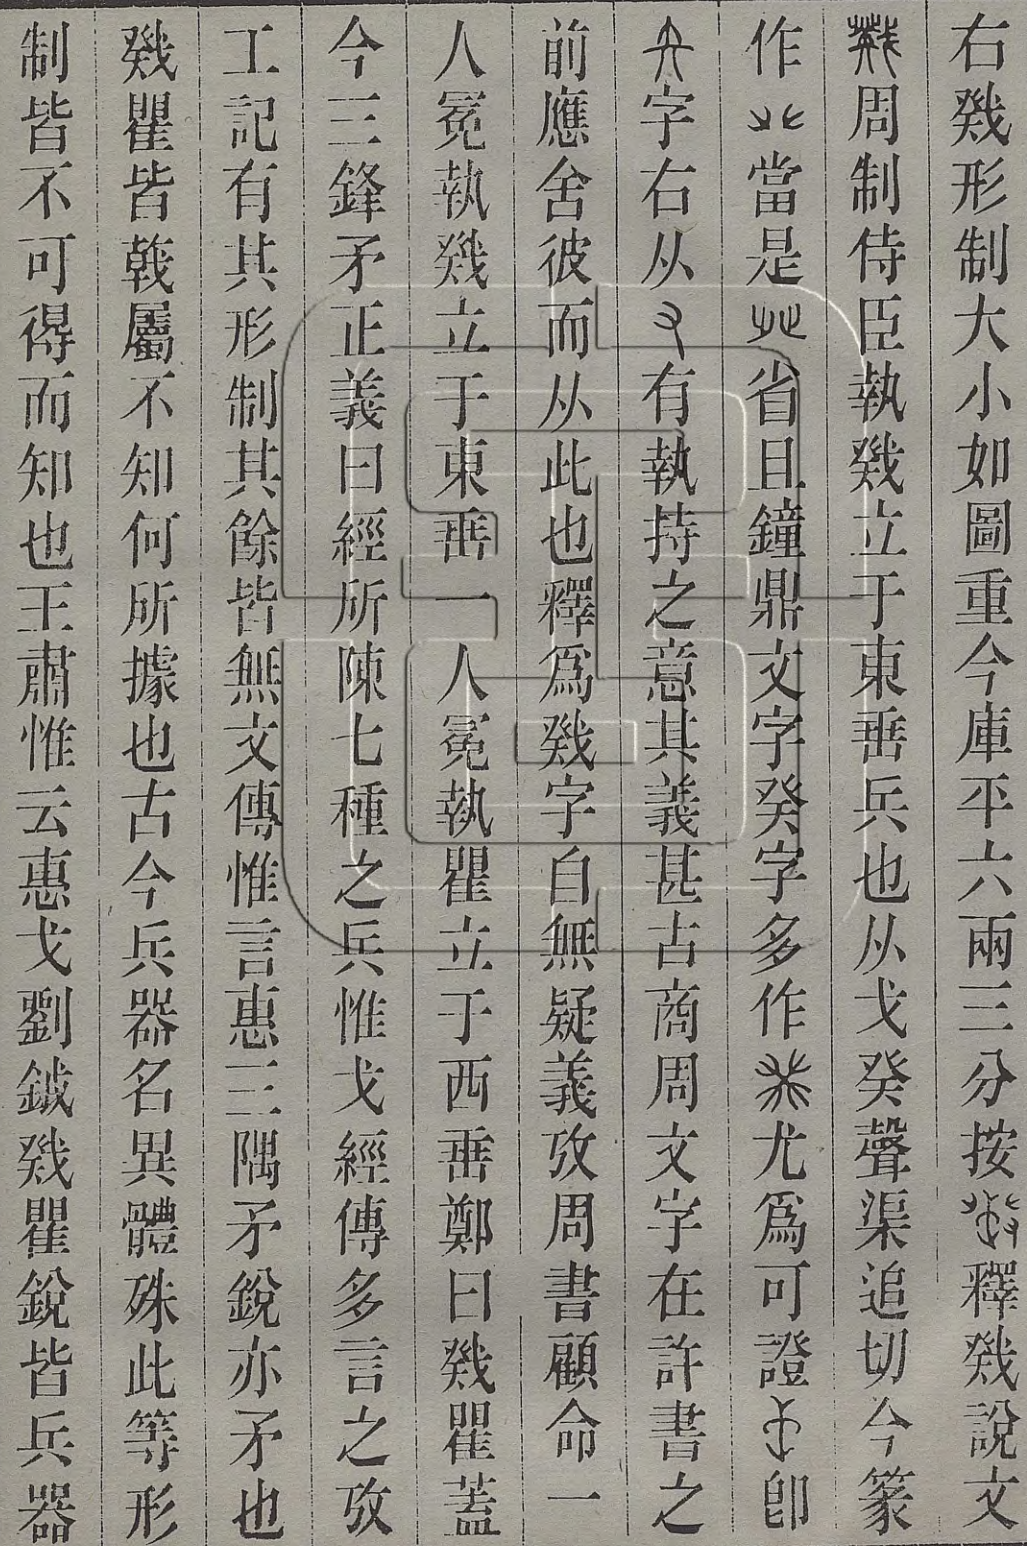 右戣形制大小如圖重今庫平六兩三分按釋戣說文
周制侍臣執戣立于東垂兵也从戈癸聲渠追切今篆
作當是省且鐘鼎文字癸字多作尤爲可證卽
字右从有執持之意其義甚古商周文字在許書之
前應舍彼而从此也釋爲戣字自無疑義攷周書顧命一
人冕執戣立于東垂一人冕執瞿立于西垂鄭曰戣瞿蓋
今三鋒矛正義曰經所陳七種之兵惟戈經傳多言之攷
工記有其形制其餘皆無文傳惟言惠三隅矛銳亦矛也
戣瞿皆戟屬不知何所據也古今兵器名異體殊此等形
制皆不可得而知也王肅惟云惠戈劉鉞戣瞿銳皆兵器